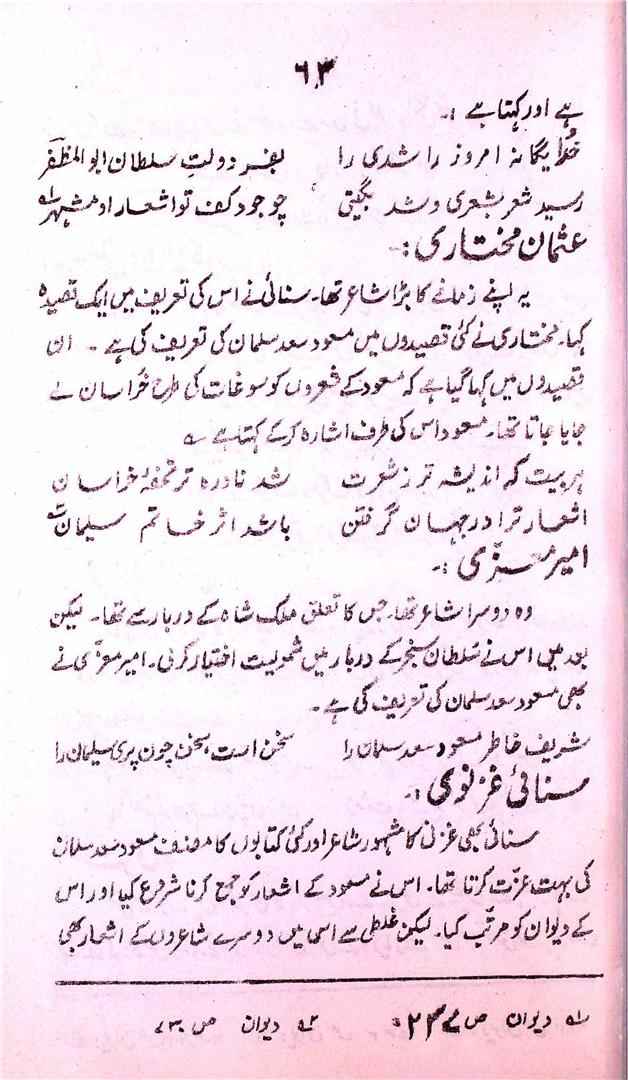 ۶۳
ہے اور کہتا ہے :۔
خدایگانہ امروز راشدی را بفر دولتِ سلطان ابوالمظفر
رسید شعر بشعری و شد بگیتی چو جود کف تو اشعار او مشہر ؂۱
عثمان مختاری :۔
یہ اپنے زمانے کا بڑا شاعر تھا۔ سنائی نے اس کی تعریف میں ایک قصیدہ
کہا۔ مختاری نے کئی قصیدوں میں مسعود سعد سلمان کی تعریف کی ہے ۔ ان
قصیدوں میں کہا گیا ہے کہ مسعود کے شعروں کو سوغات کی طرح خراسان لے
جایا جاتا تھا۔ مسعود اس کی طرف اشارہ کر کے کہتا ہے ؎
ہر بیت کہ اندیشہ تر ز شعرت شد نادرہ تر تحفۂ خراسان
اشعار ترا در جہان گرفتن باشد اثر خاتم سلیمان ؂۲
امیر معزّی :۔
وہ دوسرا شاعر تھا۔ جس کا تعلق ملک شاہ کے دربار سے تھا۔ لیکن
بعد میں اس نے سُلطان سنجر کے دربار میں شمولیت اختیار کر لی۔ امیر معزّی نے
بھی مسعود سعد سلمان کی تعریف کی ہے ۔
شریف خاطر مسعود سعد سلمان را سخن است سخن چون پری سلیمان را
سنائی غزنوی :۔
سنائی بھی غزنی کا مشہور شاعر اور کئی کتابوں کا مصنف مسعود سعد سلمان
کی بہت عزّت کرتا تھا۔ اس نے مسعود کے اشعار کو جمع کرنا شروع کیا اور اس
کے دیوان کو مرتّب کیا۔ لیکن غلطی سے اس میں دوسرے شاعروں کے اشعار بھی
؂۱ دیوان ص ؂۲ دیوان ص ۷۳۰